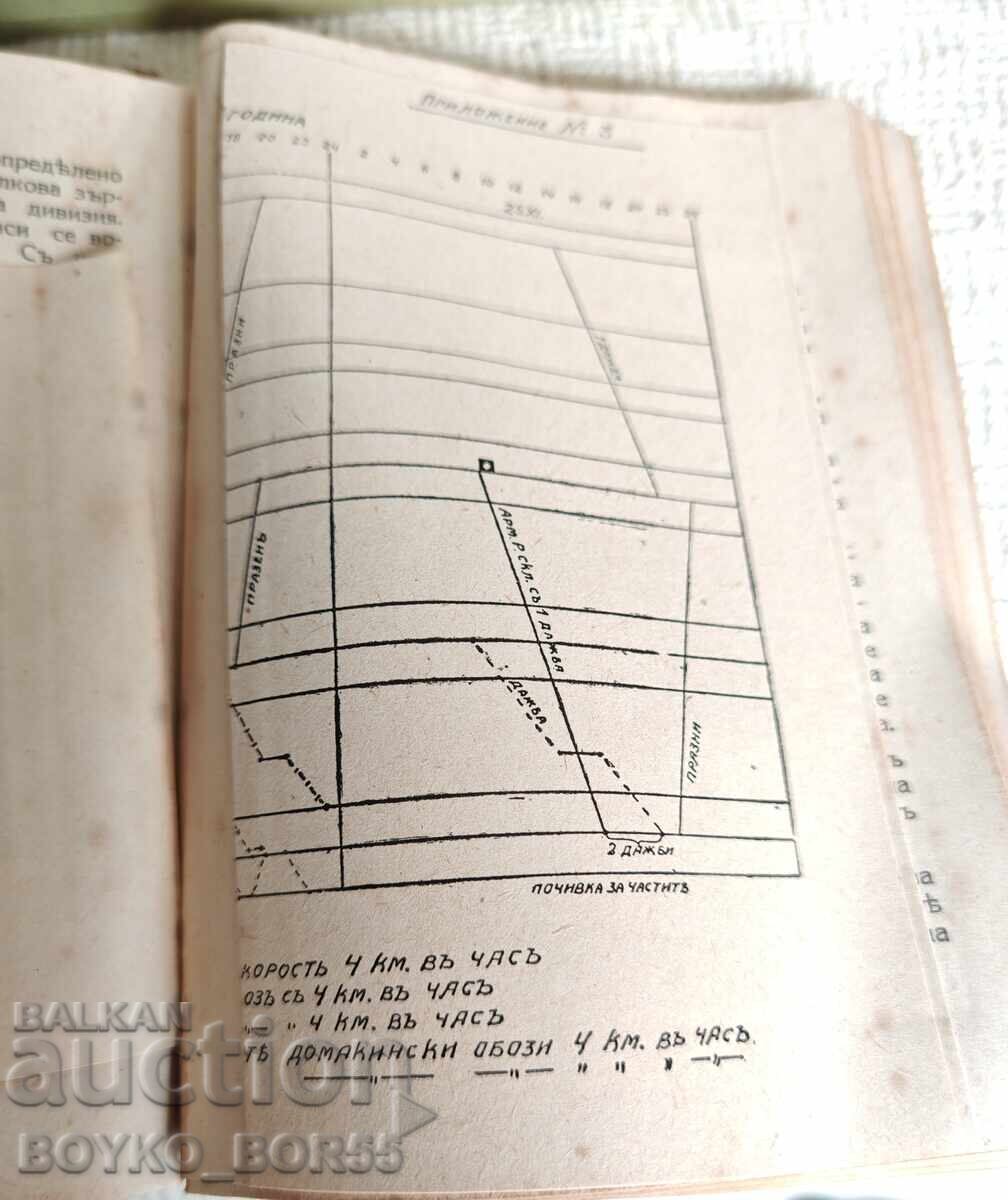 опредѣлено
лкова зър-
а дивизия.
нси се во-
Съ
ПРИЛОЖЕНИЕ № 8
ГОДИНА
18 20 22 24 2 4 6 8 10 12 14 16 18 20 22 24
ПРАЗНИ
ПРАЗЕНЪ
АРМ. Р. СКЛ. СЪ 1 ДАЖБА
1 ДАЖБА
ПРАЗНИ
2 ДАЖБИ
ПОЧИВКА ЗА ЧАСТИТѢ
КОРОСТЬ 4 КМ. ВЪ ЧАСЪ
ОЗЪ СЪ 4 КМ. ВЪ ЧАСЪ
—„— „ 4 КМ. ВЪ ЧАСЪ
ТѢ ДОМАКИНСКИ ОБОЗИ 4 КМ. ВЪ ЧАСЪ.
—„— —„— „ „ „ —„—
BALKAN
auction
BOYKO_BOR55